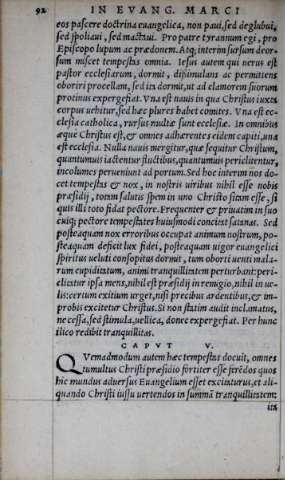 92 IN EVANG. MARCI
eos pascere doctrina euangelica, non paui, sed deglubui,
sed spoliaui, sed mactaui. Pro patre tyrannum egi, pro
Episcopo lupum ac prædonem. Atq; interim sursum deor-
sum miscet tempestas omnia. Iesus autem qui uerus est
pastor ecclesiarum, dormit, dissimulans ac permittens
oboriri procellam, sed ita dormit, ut ad clamorem suorum
protinus expergefiat. Vna est nauis in qua Christus iuxta
corpus uehitur, sed hæc plures habet comites. Vna est ec-
clesia catholica, rursus multæ sunt ecclesiæ. In omnibus
æque Christus est, & omnes adhærentes eidem capiti, una
est ecclesia. Nulla nauis mergitur, quæ sequitur Christum,
quantumuis iactentur fluctibus, quantumuis periclitentur,
incolumes perueniunt ad portum. Sed hoc interim nos do-
cet tempestas & nox, in nostris uiribus nihil esse nobis
præsidij, totam salutis spem in uno Christo sitam esse, si
quis illi toto fidat pectore. Frequenter & priuatim in suo
cuiq; pectore tempestates huiusmodi concitat satanas. Sed
posteaquam nox erroribus occupat animum nostrum, po-
steaquam deficit lux fidei, posteaquam uigor euangelici
spiritus ueluti consopitus dormit, tum oborti uenti mala-
rum cupiditatum, animi tranquillitatem perturbant: peri-
clitatur ipsa mens, nihil est præsidij in remigio, nihil in ue-
lis: certum exitium urget, nisi precibus ardentibus, & im-
probis excitetur Christus. Si non statim audit inclamatus,
ne cessa, sed stimula, uellica, donec expergefiat. Per hunc
ilico redibit tranquillitas.
CAPVT V.
QVemadmodum autem hæc tempestas docuit, omnes
tumultus Christi præsidio fortiter esse ferēdos quos
hic mundus aduersus Euangelium esset excitaturus, et ali-
quando Christi iussu uertendos in summā tranquillitatem:
ita